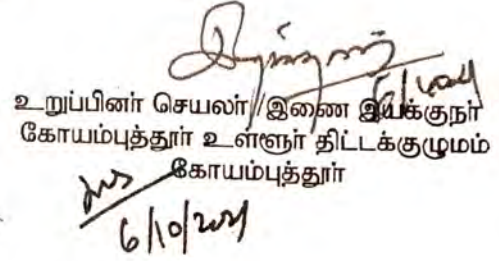 உறுப்பினர் செயலர்/இணை இயக்குநர்
கோயம்புத்தூர் உள்ளூர் திட்டக்குழுமம்
கோயம்புத்தூர்
6/10/2021